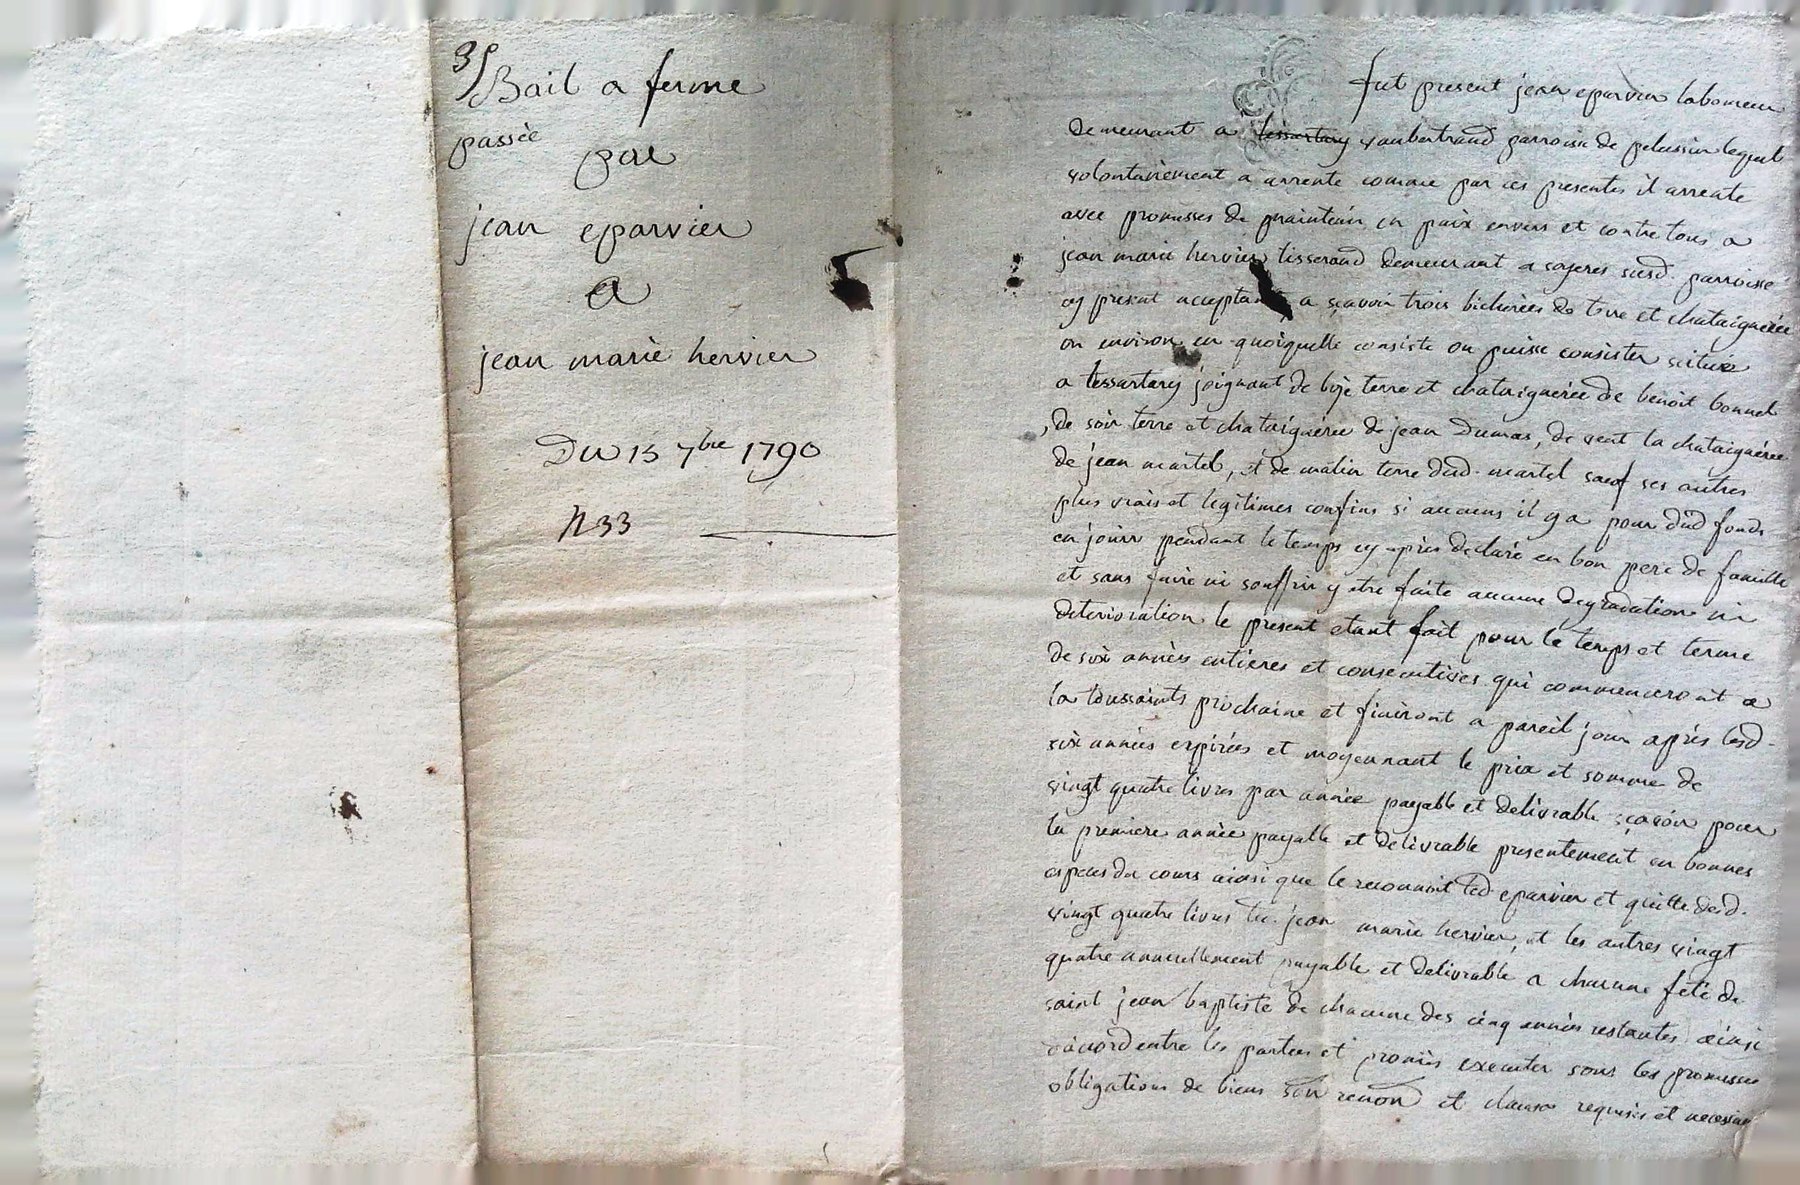 3
Bail a ferme
passée
par
jean eparvier
a
jean marie hervier
Du 15 7bre 1790
N 33
fut present jean eparvier laboureur
demeurant a tessartary vaubertrand parroisse de pelussin lequel
volontairement a arrente comme par ces presentes il arrente
avec promesses de maintenir en paix envers et contre tous a
jean marie hervier tisserand demeurant a soyeres susd. parroisse
cy present acceptant a sçavoir trois bicherées de terre et chataignerée
ou environ en quoiquelle consiste ou puisse consister scituée
a tessartary joignant de bize terre et chataignerée de benoit bonnel
, de soir terre et chataignerée de jean Dumas, de vent la chataignerée
de jean martel, et de matin terre dud. martel sauf ses autres
plus vrais et legitimes confins si aucuns il y a pour dud fonds
en jouir pendant le temps cy après declaré en bon pere de famille
et sans faire ni souffrir y etre faite aucune degradation ni
deterioration le present etant fait pour le temps et terme
de six années entieres et consecutives qui commenceront a
la toussaints prochaine et finiront a pareil jour après lesd.
six années expirées et moyennant le prix et somme de
vingt quatre livres par année payable et delivrable sçavoir pour
la premiere année payable et delivrable presentement en bonnes
especes du cours ainsi que le reconnoit led. eparvier et quitte desd.
vingt quatre livres jean marie hervier, et les autres vingt
quatre annuellement payable et delivrable a chacune fete de
saint jean baptiste de chacune des cinq années restantes ainsi
d'accord entre les parties et promis executer sous les promesses
obligations de biens renon et clauses requises et necessaires